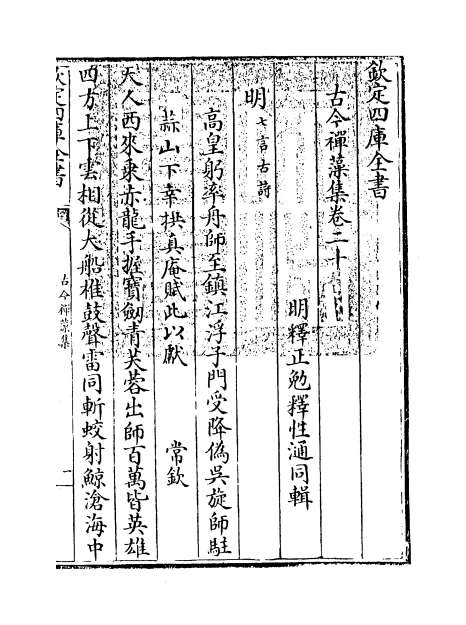 欽定四庫全書
古今禪藻集卷二十
明釋正勉釋性通同輯
明七言古詩
高皇躬率舟師至鎮江浮子門受降偽吳旋師駐
蒜山下幸拱真庵賦此以獻　常欽
天人西來乘赤龍手握寶劒青芙蓉出師百萬皆英雄
四方上下雲相從大船椎鼓聲雷同斬蛟射鯨滄海中
欽定四庫全書
古今禪藻集
一